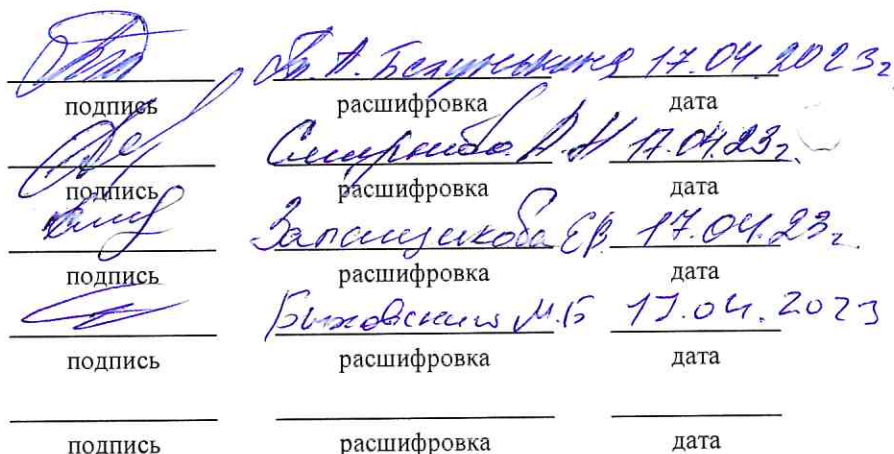 А. Бегунькина 17.04.2023г.
подпись расшифровка дата
Смирнова А.Н 17.04.23г.
подпись расшифровка дата
Запащикова ЕВ. 17.04.23г.
подпись расшифровка дата
Быховский М.Б 17.04.2023
подпись расшифровка дата
подпись расшифровка дата